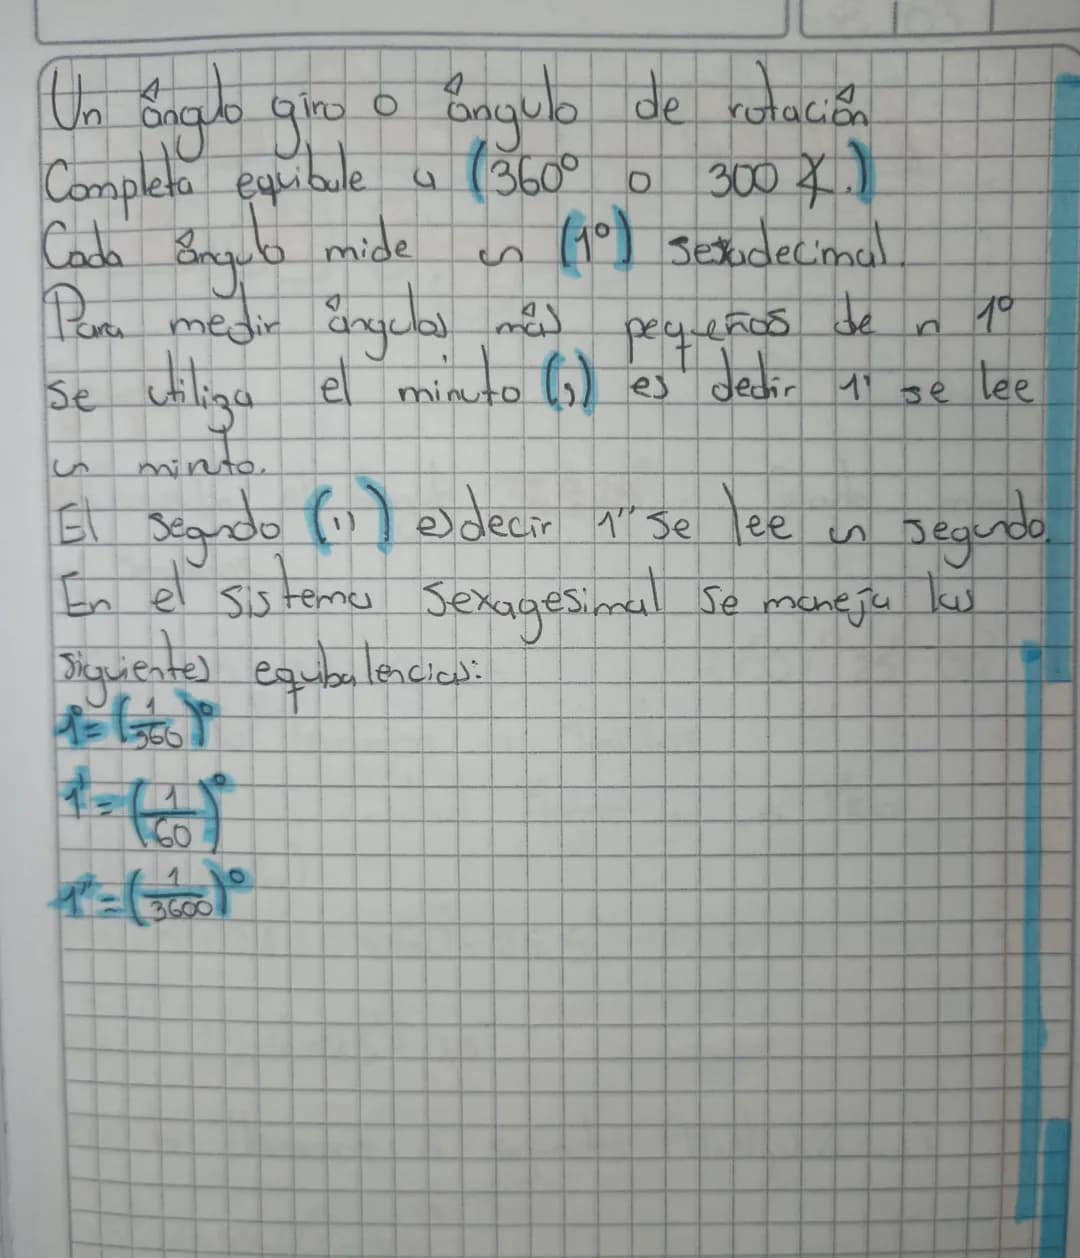 Un ángulo giro o ángulo de rotación
Completa equibale a (360° o 300 ∡.)
Cada ángulo mide un (1°) sexadecimal.
Para medir ángulos más pequeños de n 1°
se utiliza el minuto (,) es dedir 1' se lee
un minto.
El segndo (,,) es decir 1" se lee un segundo.
En el sistema Sexagesimal se maneja las
siguientes equibalencias:
1°=(1/360)°
1'=(1/60)°
1"=(1/3600)°